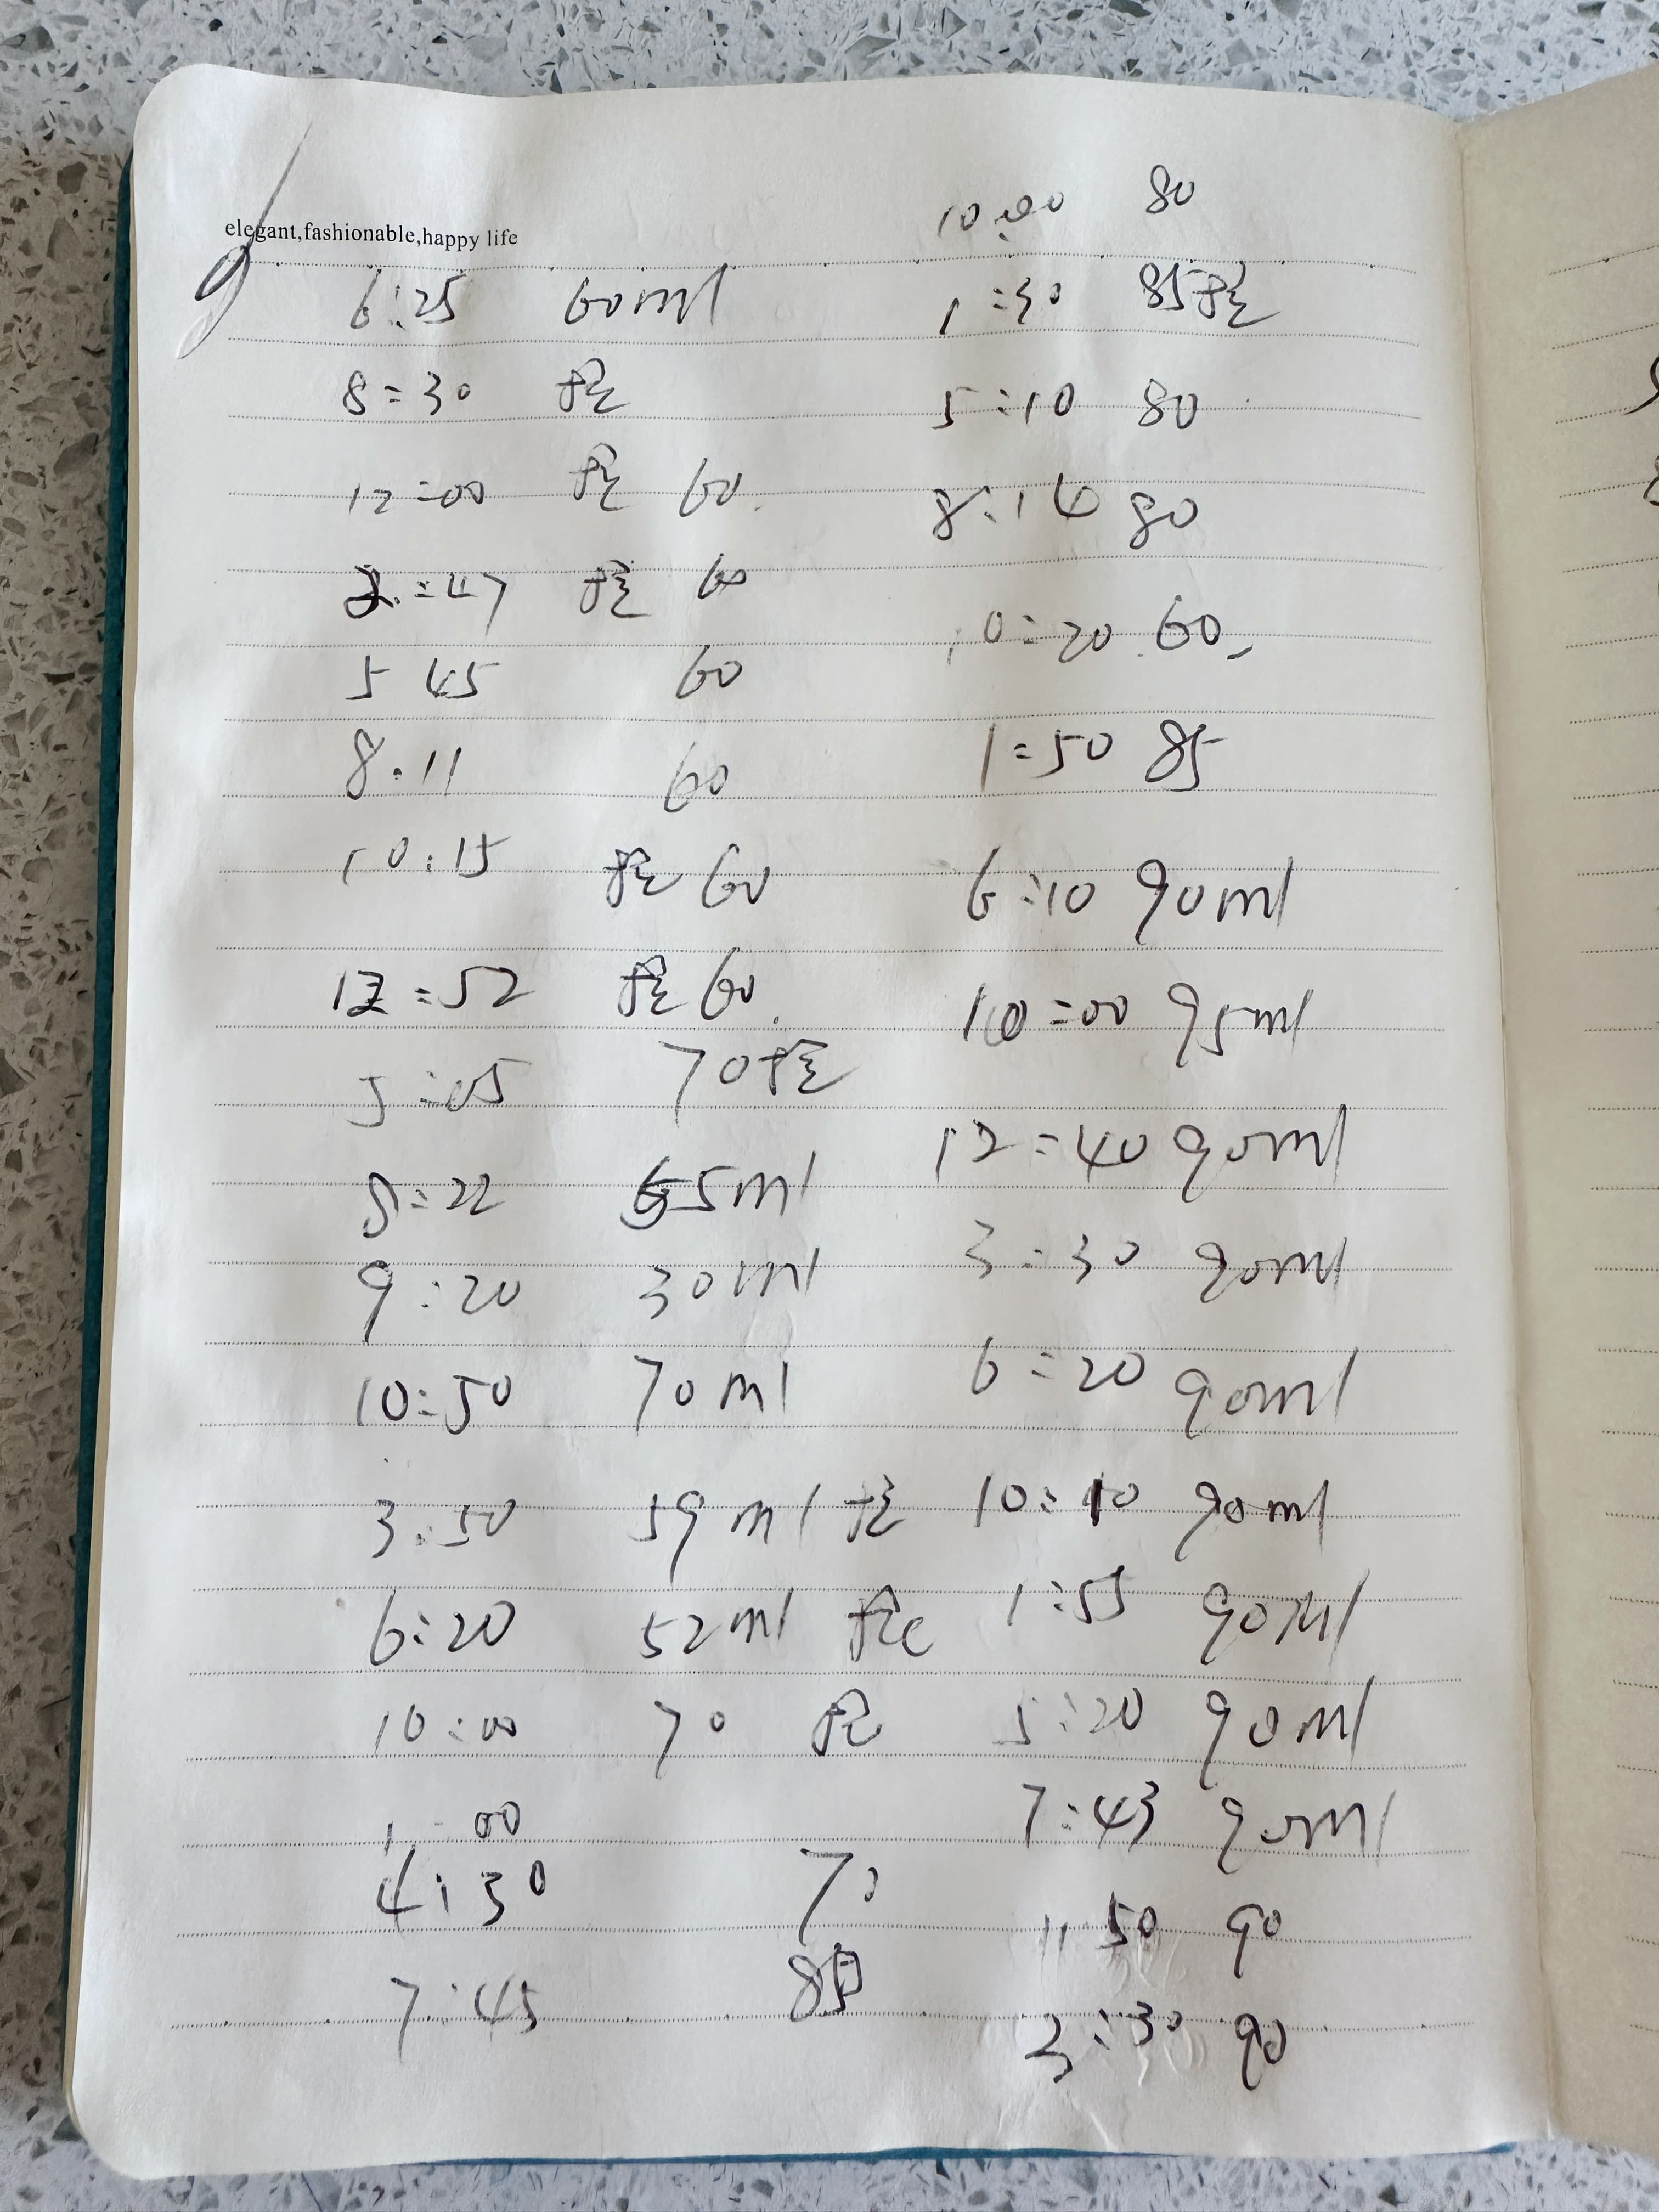 elegant,fashionable,happy life
6:25 60ml
8:30 屎
12:00 屎 60
2:47 屎 60
5 45 60
8.11 60
10:15 屎 60
12:52 屎 60
5:05 70屎
8:22 65ml
9:20 30ml
10:50 70ml
3:50 59ml 屎
6:20 52ml 屎
10:00 70 屎
1:00
4:30 70
7:45
80
1:30 85屎
5:10 80
8:14 80
10:20 60
1:50 85
6:10 90ml
10:00 95ml
12:40 90ml
3:30 90ml
6:20 90ml
10:10 90ml
1:55 90ml
5:20 90ml
7:43 90ml
11 50 90
3:30 90